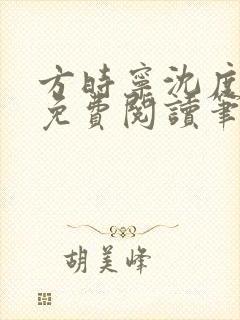 方時寧沈度
免費閱讀筆
胡美峰